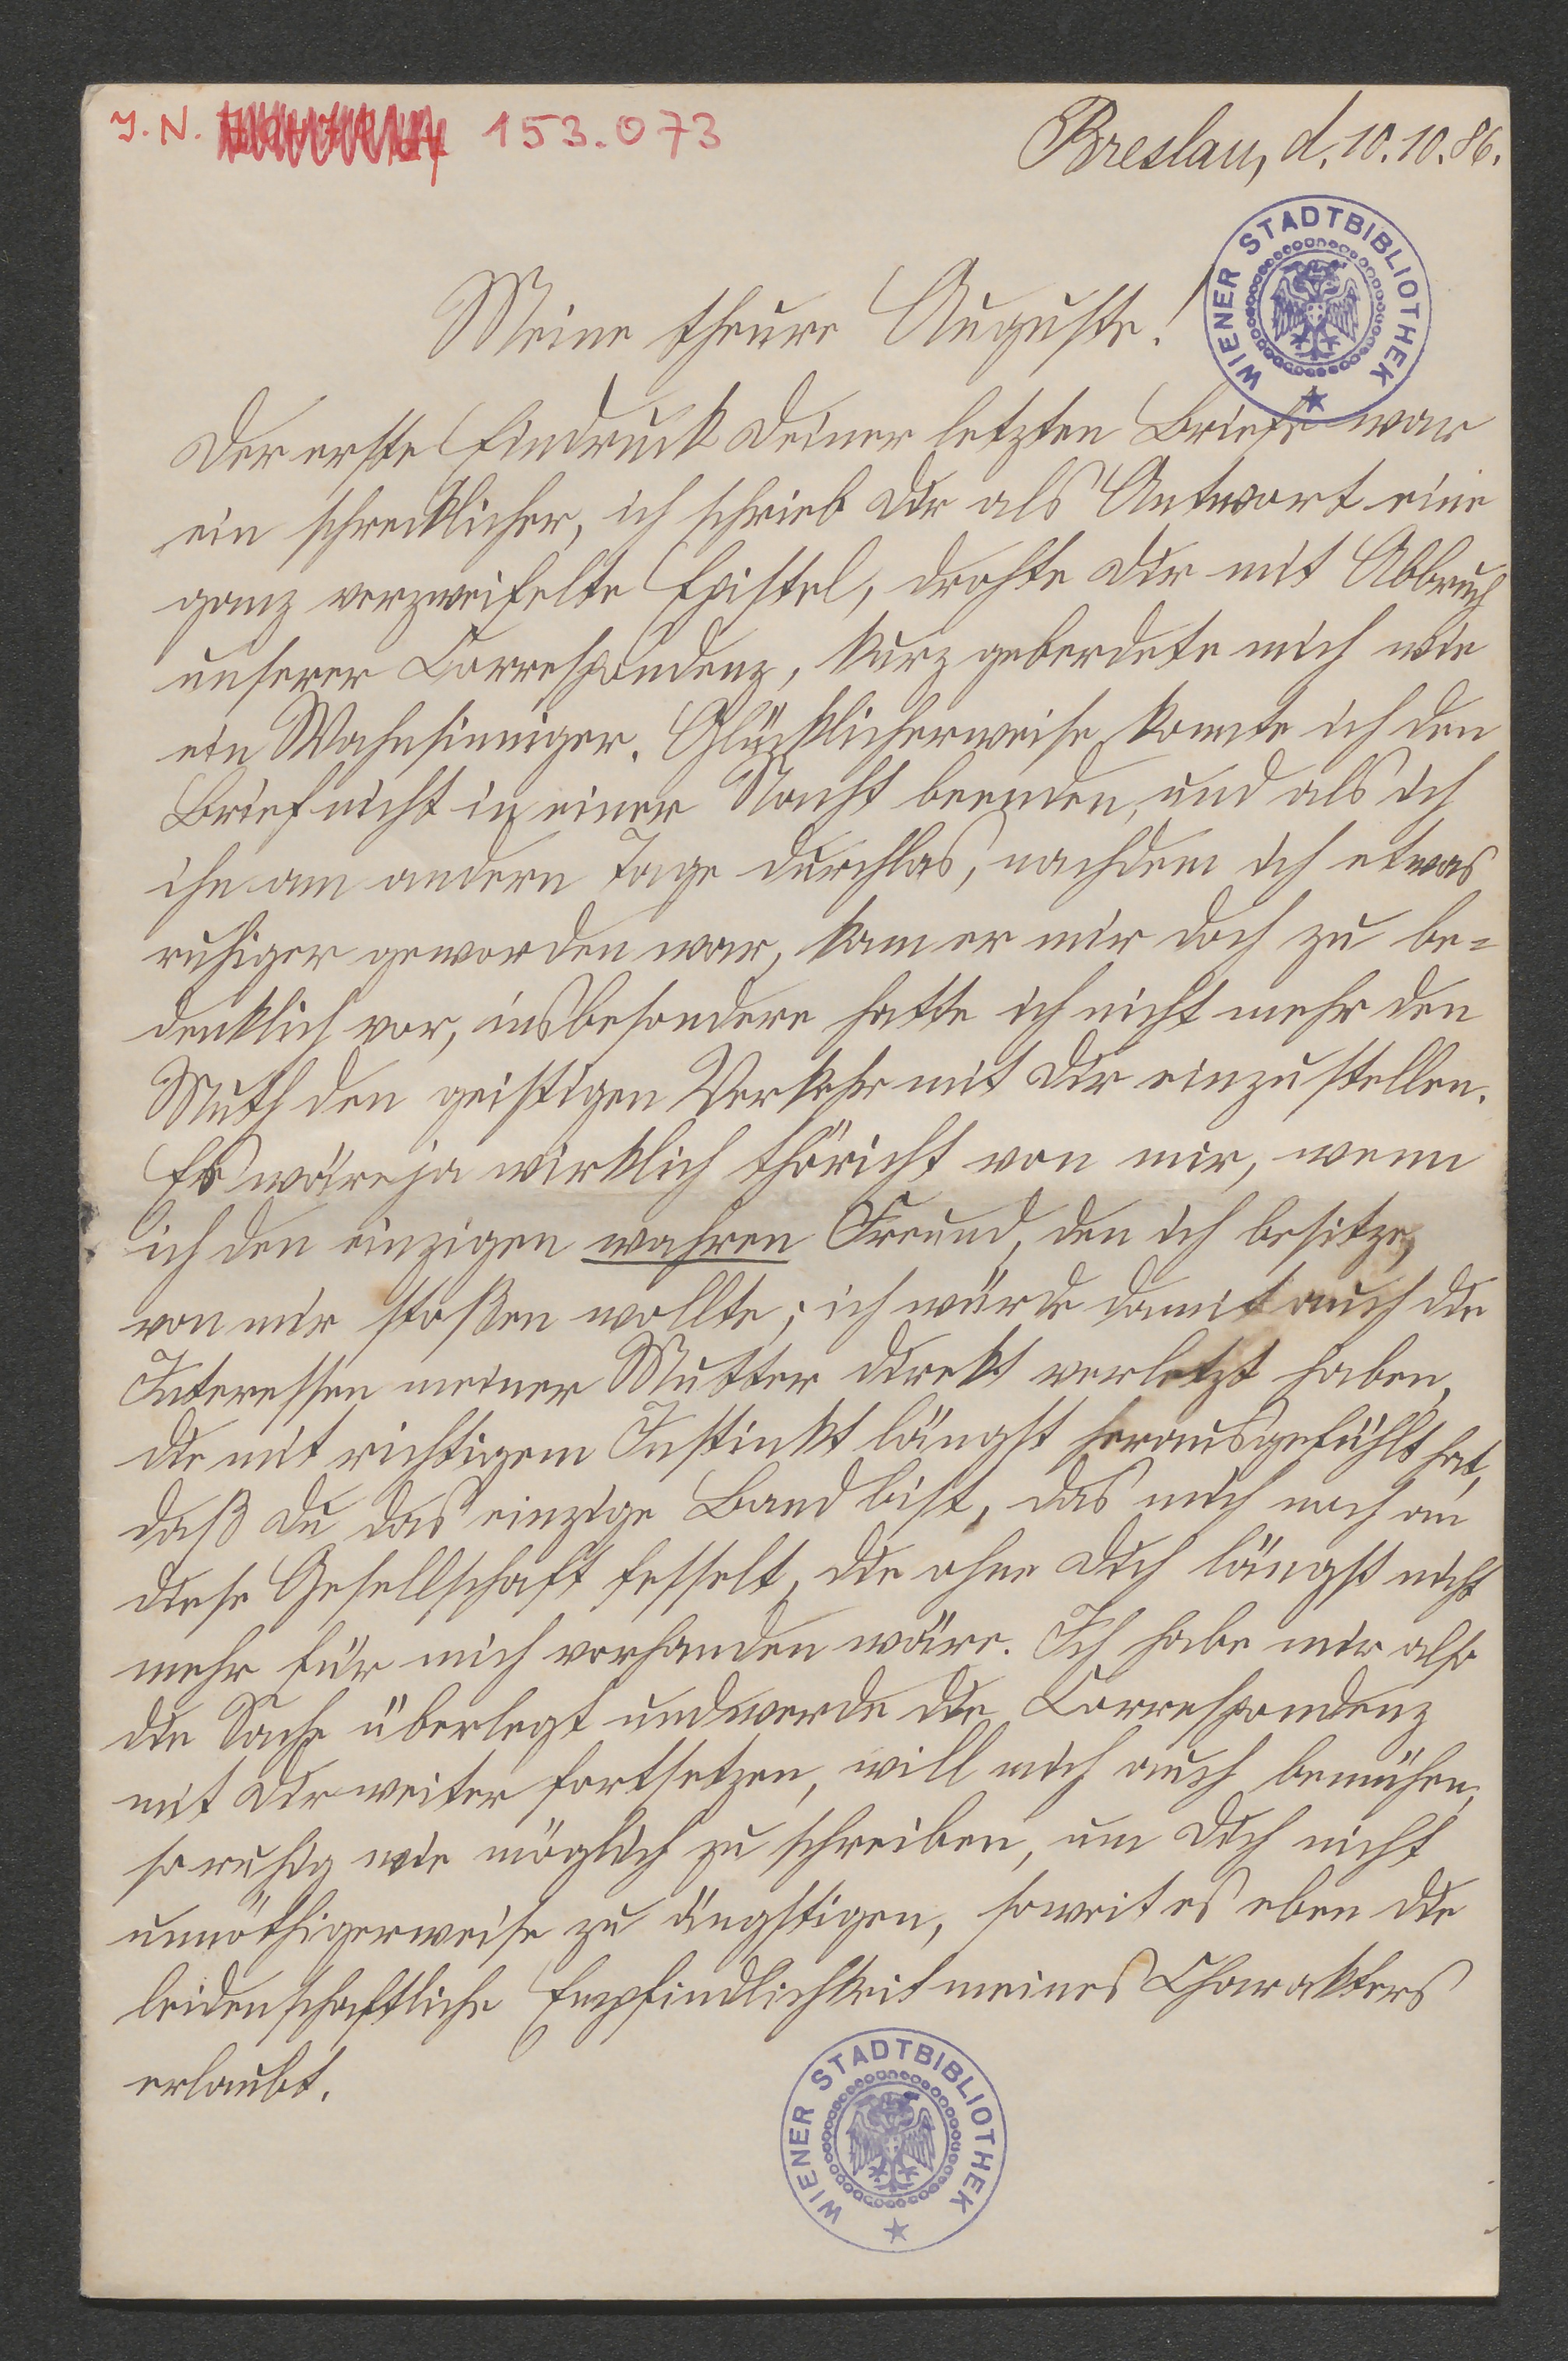 J. N. 153.073
Breslau, d. 10.10.86.
WIENER STADTBIBLIOTHEK
Meine theure Auguste!
Der erste Eindruck Deiner letzten Briefe war
ein schrecklicher, ich schrieb Dir als Antwort eine
ganz verzweifelte Epistel, drohte Dir mit Abbruch
unserer Correspondenz, kurz geberdete mich wie
ein Wahnsinniger. Glücklicherweise konnte ich den
Brief nicht in einer Nacht beenden, und als ich
ihn am andern Tage durchlas, nachdem ich etwas
ruhiger geworden war, kam er mir doch zu be-
denklich vor, insbesondere hatte ich nicht mehr den
Muth den geistigen Verkehr mit Dir einzustellen.
Es wäre ja wirklich thöricht von mir, wenn
ich den einzigen wahren Freund, den ich besitze,
von mir stoßen wollte; ich würde damit auch die
Interessen meiner Mutter direkt verletzt haben,
die mit richtigem Instinkt längst herausgefühlt hat,
daß Du das einzige Band bist, das mich noch an
diese Gesellschaft fesselt, die ohne Dich längst nicht
mehr für mich vorhanden wäre. Ich habe mir also
die Sache überlegt und werde die Correspondenz
mit Dir weiter fortsetzen, will mich auch bemühen,
so ruhig wie möglich zu schreiben, um Dich nicht
unnöthigerweise zu ängstigen, soweit es eben die
leidenschaftliche Empfindlichkeit meines Charakters
erlaubt.
WIENER STADTBIBLIOTHEK